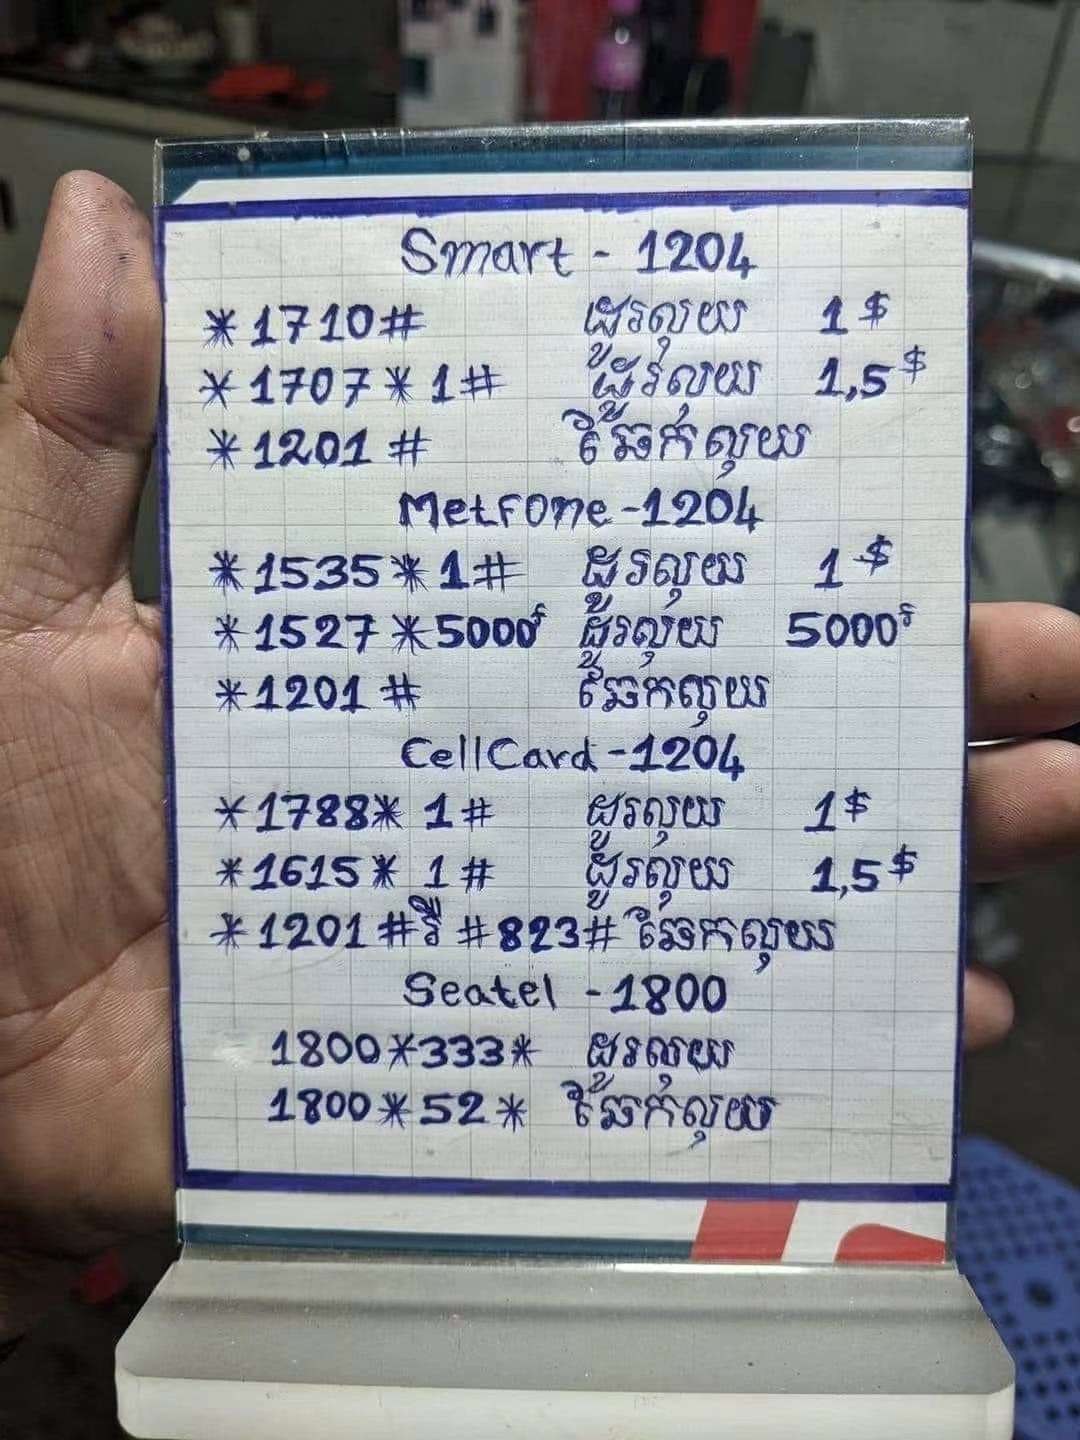 Smart - 1204
*1710# ដូរលុយ 1$
*1707*1# ដូរលុយ 1,5$
*1201# ឆែកលុយ
Metfone -1204
*1535*1# ដូរលុយ 1$
*1527*5000៛ ដូរលុយ 5000៛
*1201# ឆែកលុយ
CellCard -1204
*1788*1# ដូរលុយ 1$
*1615*1# ដូរលុយ 1,5$
*1201#រឺ #823# ឆែកលុយ
Seatel -1800
1800*333* ដូរលុយ
1800*52* ឆែកលុយ